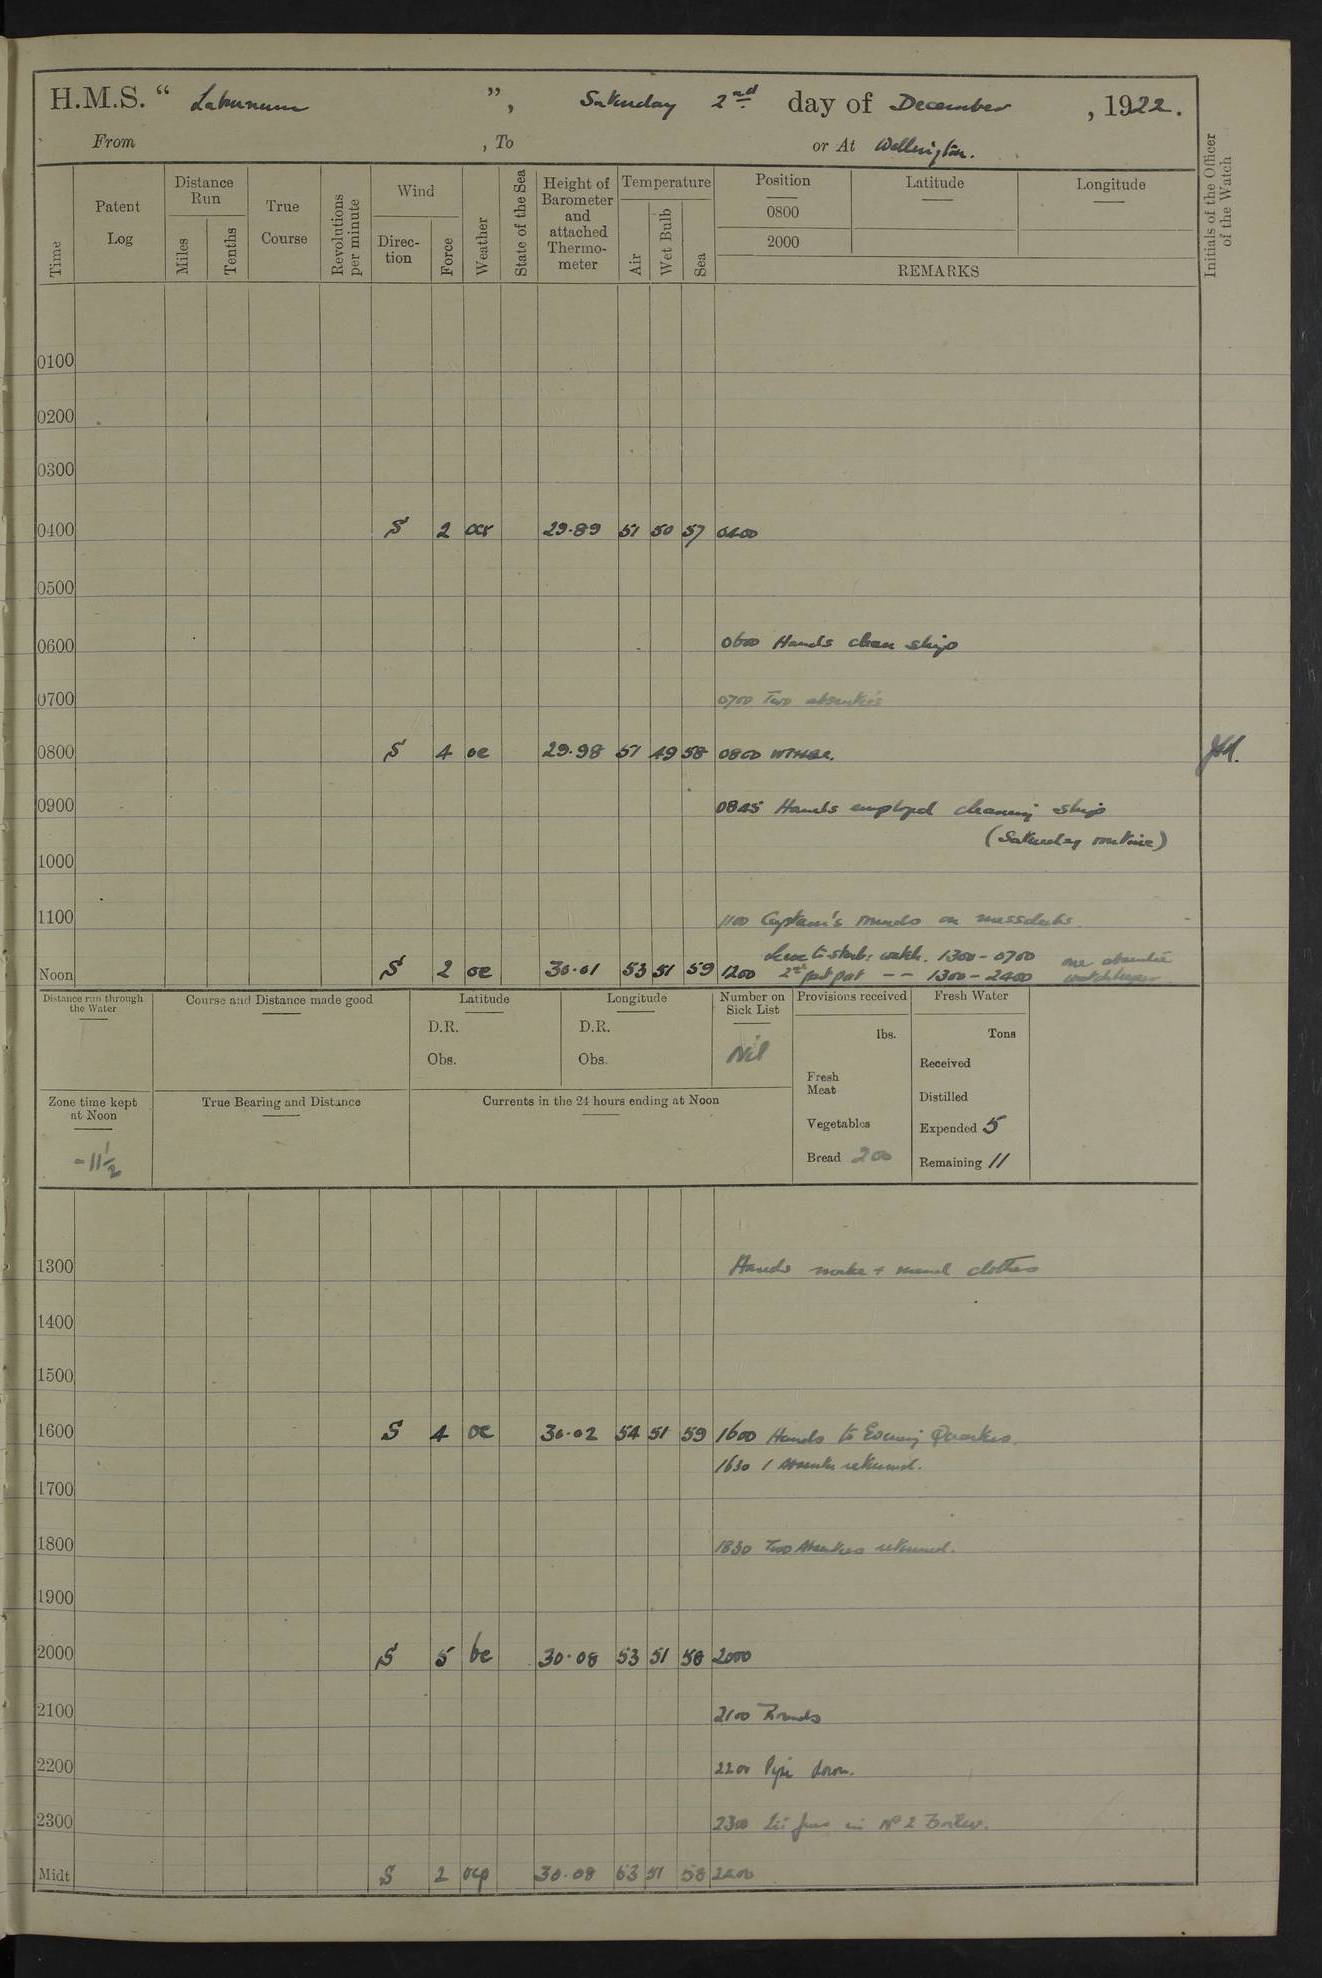 H.M.S. “ Laburnum ”, Saturday 2nd day of December , 1922.
From , To or At Wellington.
Time
Patent Log
Distance Run
Miles
Tenths
True Course
Revolutions per minute
Wind
Direc- tion
Force
Weather
State of the Sea
Height of Barometer and attached Thermo- meter
Temperature
Air
Wet Bulb
Sea
Position
0800
2000
Latitude
Longitude
REMARKS
Initials of the Officer of the Watch
0100
0200
0300
0400 S 2 ocr 29.89 51 50 57 0400
0500
0600 0600 Hands clean ship
0700 0700 Two absentees
0800 S 4 oc 29.98 51 49 58 0800
0900 0845 Hands employed cleaning ship
(Saturday routine)
1000
1100 1100 Captain's rounds on messdecks.
Leave to starbd watch. 1300 - 0700 one absentee
Noon S 2 oc 30.01 53 51 59 1200 2nd part port -- 1300 - 2400 watchkeeper
Distance run through the Water
Course and Distance made good
Latitude
D.R.
Obs.
Longitude
D.R.
Obs.
Number on Sick List
Nil
Provisions received
lbs.
Fresh Meat
Vegetables
Bread 200
Fresh Water
Tons
Received
Distilled
Expended 5
Remaining 11
Zone time kept at Noon
-11 1/2
True Bearing and Distance
Currents in the 24 hours ending at Noon
1300 Hands make + mend clothes
1400
1500
1600 S 4 oc 30.02 54 51 59 1600 Hands to Evening Quarters.
1630 1 Absentee returned.
1700
1800 1830 Two Absentees returned.
1900
2000 S 5 bc 30.08 53 51 58 2000
2100 2100 Rounds
2200 2200 Pipe down.
2300 2300 Lit fires in No 2 Boiler.
Midt S 2 ocp 30.08 53 51 58 2400